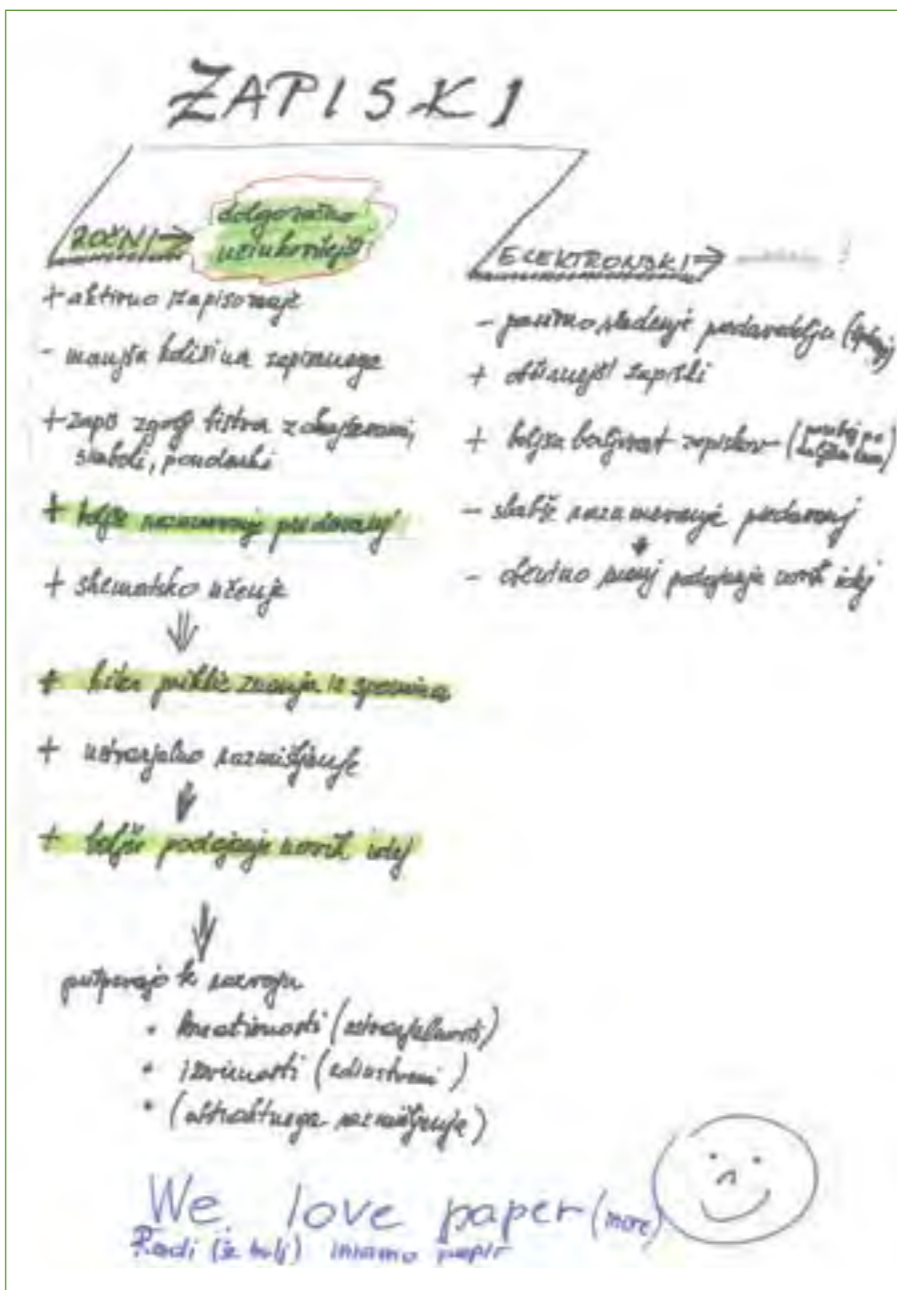 ZAPISKI
ROČNI → dolgoročno
učinkovitejši
+ aktivno zapisovanje
- manjša količina zapisanega
+ zapis zgolj bistva z okrajšavami,
simboli, poudarki
+ boljše razumevanje predavanj
+ shematsko učenje
+ hiter priklic znanja iz spomina
+ ustvarjalno razmišljanje
+ boljše podajanje novih idej
pripomorejo k razvoju
• kreativnosti (ustvarjalnosti)
• izvirnosti (edinstveni)
• (abstraktnega razmišljanja)
ELEKTRONSKI →
- pasivno sledenje predavatelju
+ obširnejši zapiski
+ boljša berljivost zapiskov
- slabše razumevanje predavanj
- občutno manj podajanja novih idej
We love paper (more)
Radi (še bolj) imamo papir